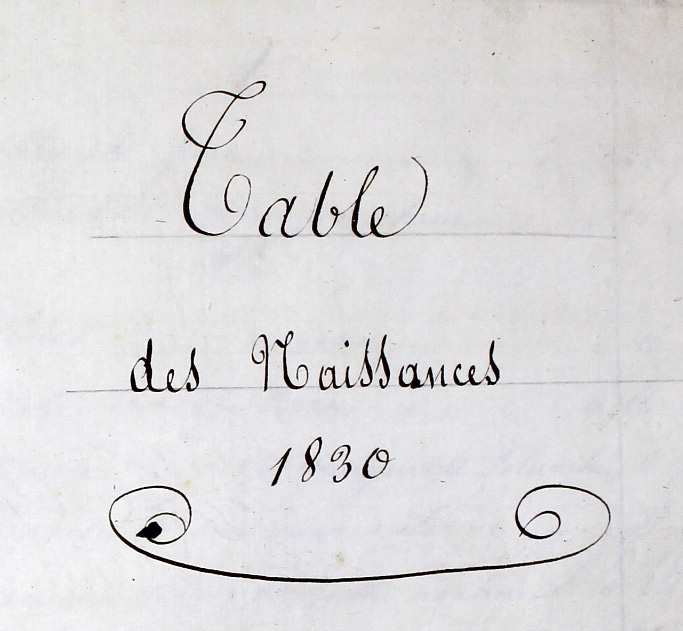 Table
des Naissances
1830